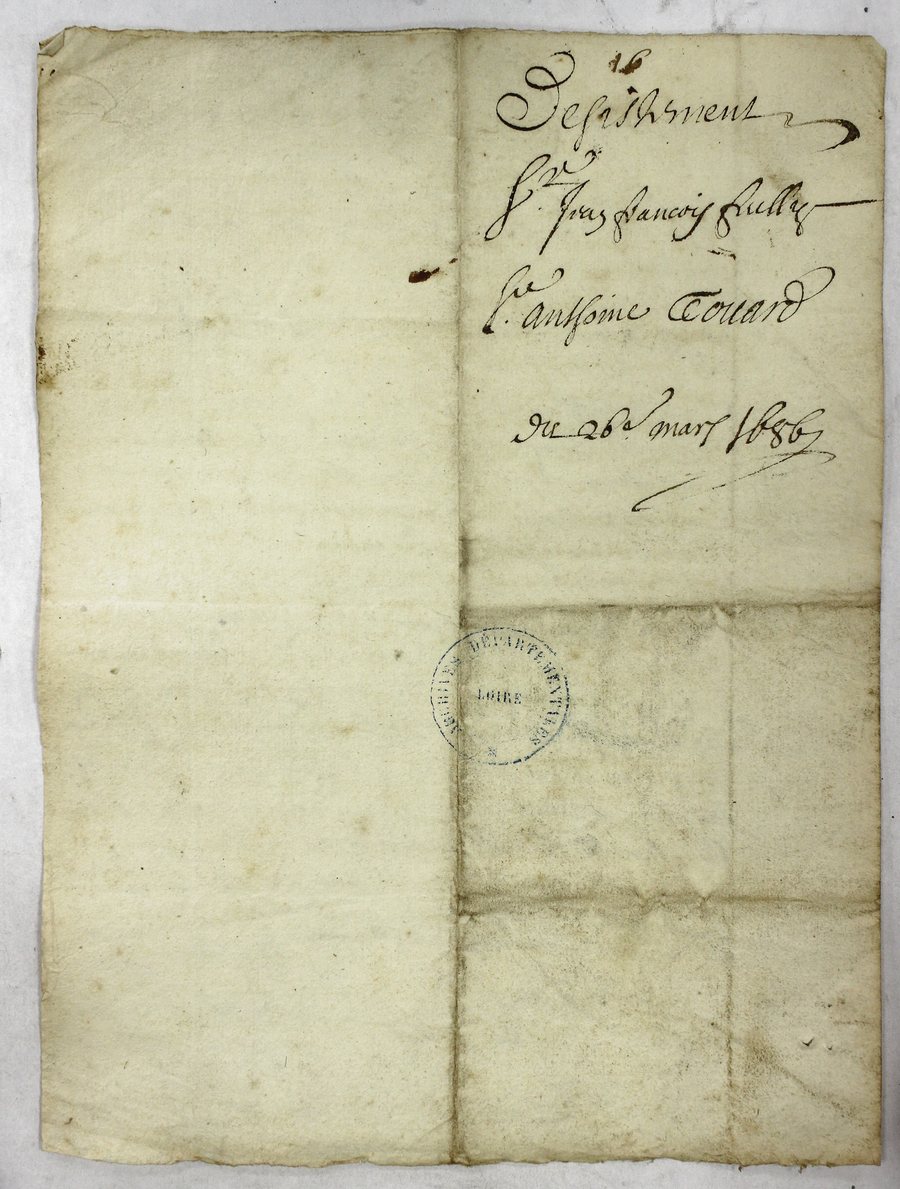 16
Desistement
Sr. Jean francois
Sr. anthoine Touard
du 26e. mars 1686
ARCHIVES DÉPARTEMENTALES
LOIRE